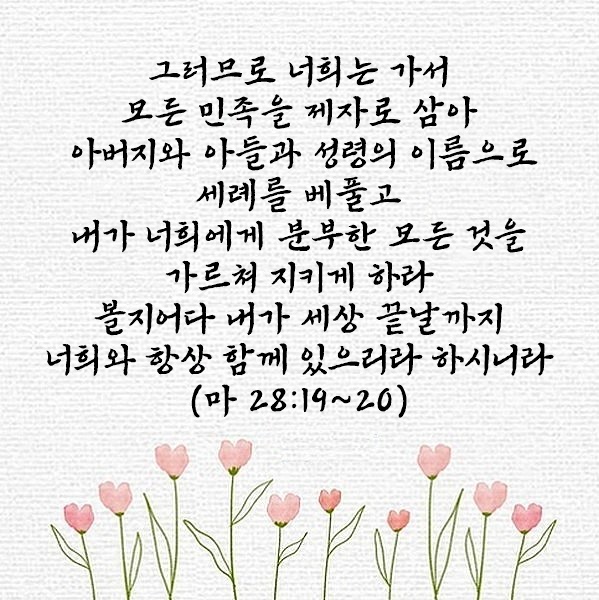 그러므로 너희는 가서
모든 민족을 제자로 삼아
아버지와 아들과 성령의 이름으로
세례를 베풀고
내가 너희에게 분부한 모든 것을
가르쳐 지키게 하라
볼지어다 내가 세상 끝날까지
너희와 항상 함께 있으리라 하시니라
(마 28:19~20)